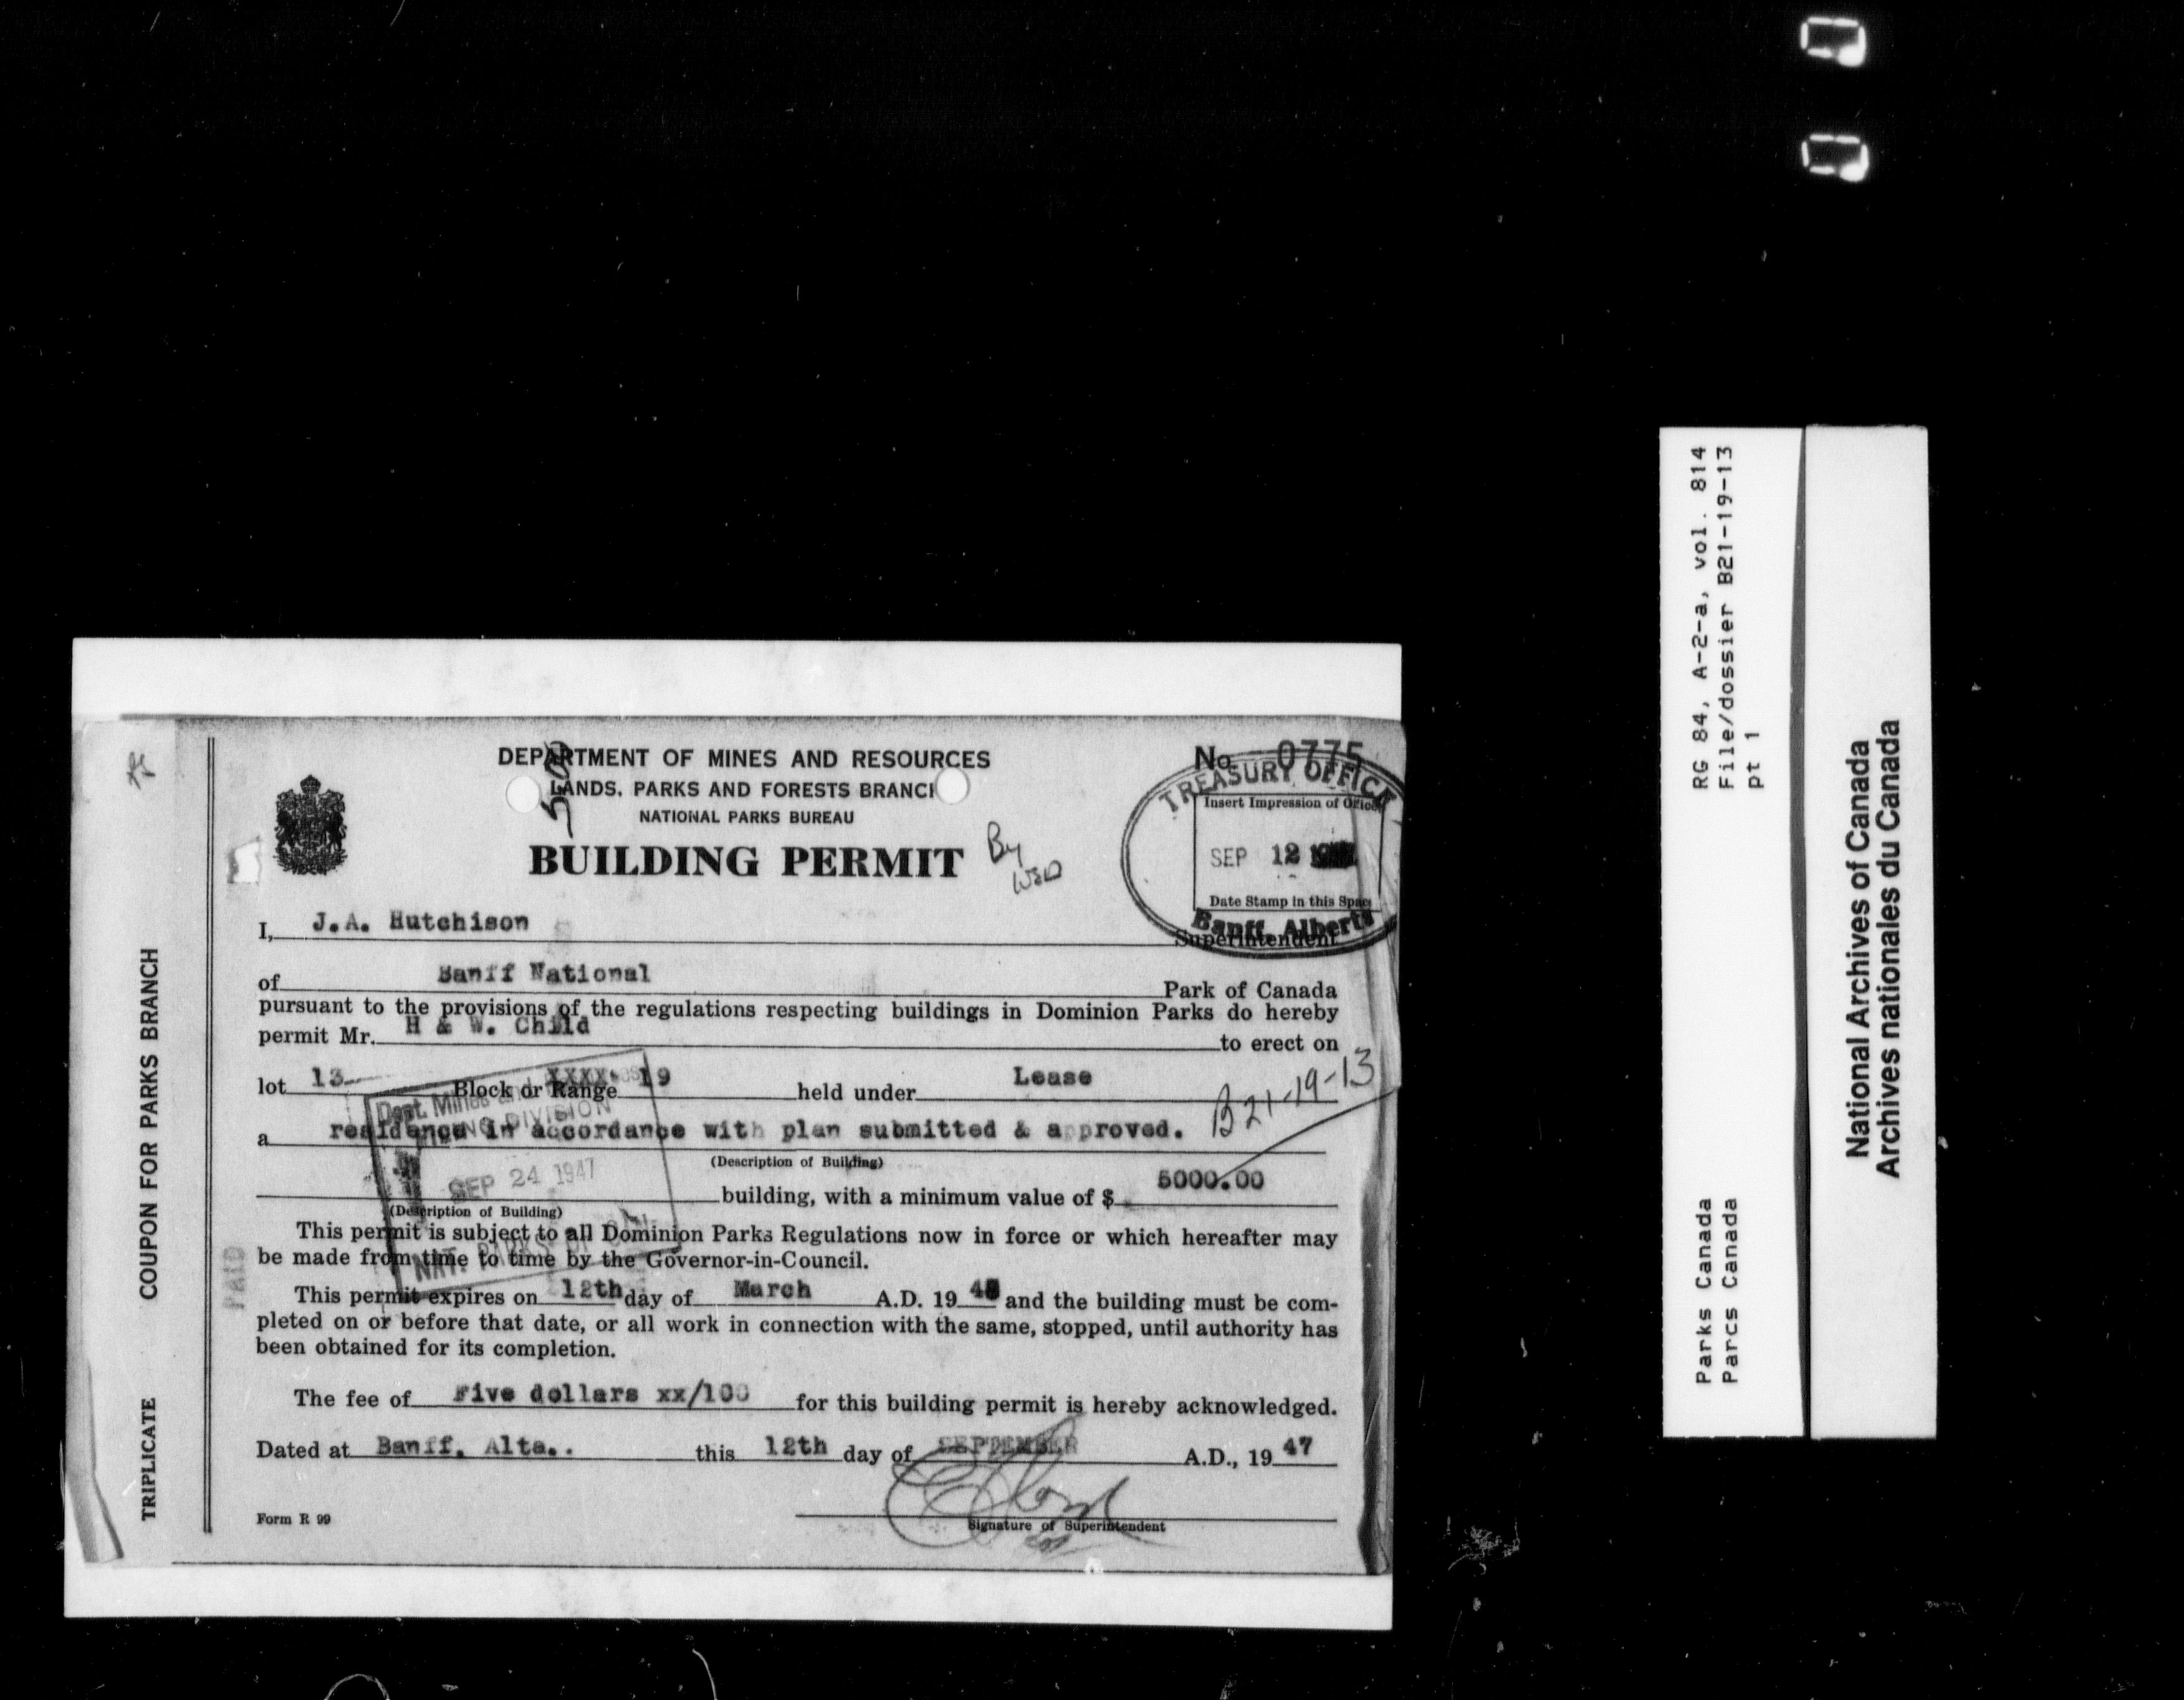 DEPARTMENT OF MINES AND RESOURCES
LANDS, PARKS AND FORESTS BRANCH
NATIONAL PARKS BUREAU
BUILDING PERMIT
By
No. 0775
TREASURY OFFICE
Insert Impression of Office
SEP 12
Date Stamp in this Space
Banff, Alberta
I, J.A. Hutchison Superintendent
of Banff National Park of Canada
pursuant to the provisions of the regulations respecting buildings in Dominion Parks do hereby
permit Mr. H & W. Child to erect on
lot 13 Block or Range XXXX 19 held under Lease
B21-19-13
a residence in accordance with plan submitted & approved.
(Description of Building)
building, with a minimum value of $ 5000.00
(Description of Building)
Dept. Mines and
DIVISION
SEP 24 1947
NAT. PARKS
This permit is subject to all Dominion Parks Regulations now in force or which hereafter may
be made from time to time by the Governor-in-Council.
This permit expires on 12th day of March A.D. 19 48 and the building must be com-
pleted on or before that date, or all work in connection with the same, stopped, until authority has
been obtained for its completion.
The fee of Five dollars xx/100 for this building permit is hereby acknowledged.
Dated at Banff, Alta.. this 12th day of SEPTEMBER A.D., 19 47
Signature of Superintendent
Form R 99
TRIPLICATE COUPON FOR PARKS BRANCH
PAID
RG 84, A-2-a, vol. 814
File/dossier B21-19-13
pt 1
Parks Canada
Parcs Canada
National Archives of Canada
Archives nationales du Canada